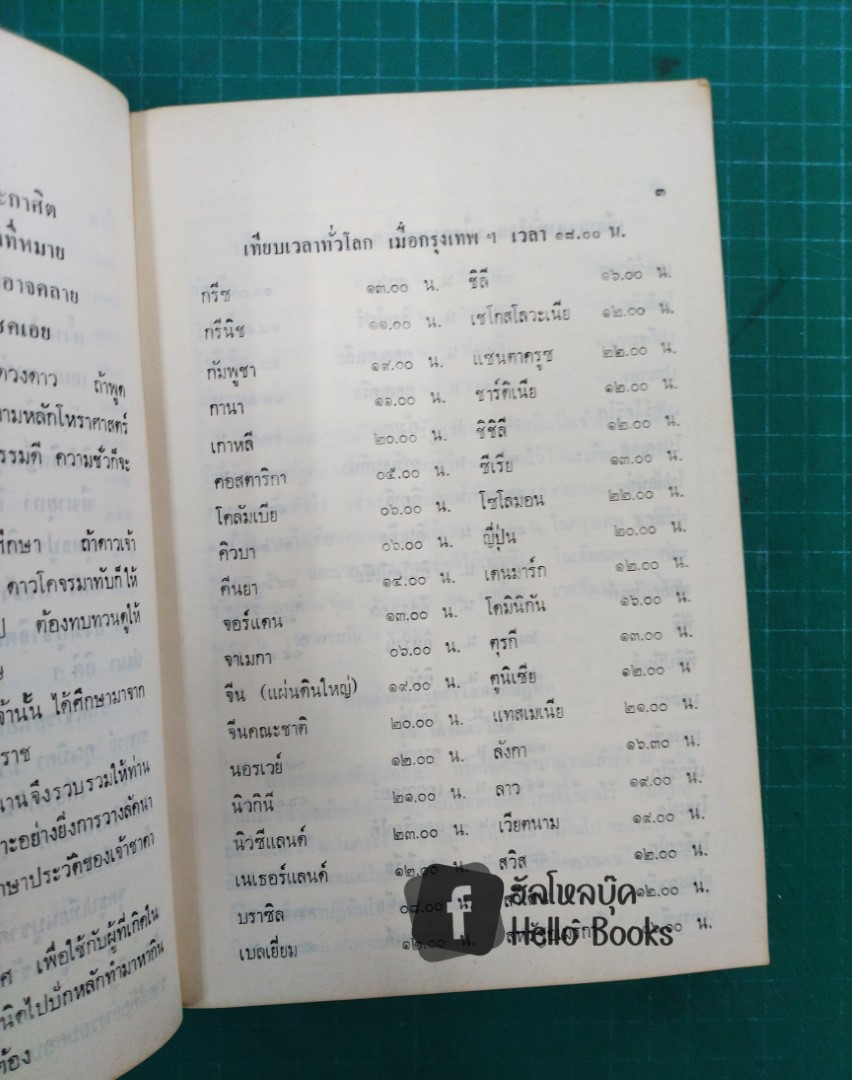 ะกาศิต
ที่หมาย
อาจคลาย
ชคเอย
ดวงดาว ถ้าพูด
ามหลักโหราศาสตร์
รรมดี ความชั่วก็จะ
ศึกษา ถ้าดาวเจ้า
ดาวโคจรมาทับก็ให้
ป ต้องทบทวนดูให้
ญ
จ้านั้น ได้ศึกษามาจาก
ราช
นานจึงรวบรวมให้ท่าน
าะอย่างยิ่งการวางลัคนา
กษาประวัติของเจ้าชาตา
ศ เพื่อใช้กับผู้ที่เกิดใน
นิดไปบั่กหลักทำมาหากิน
ต้อง
๓
เทียบเวลาทั่วโลก เมื่อกรุงเทพ ฯ เวลา ๑๘.๐๐ น.
กรีซ ๑๓.๐๐ น. ชิลี ๑๖.๐๐ น.
กรีนิช ๑๑.๐๐ น. เชโกสโลวะเนีย ๑๒.๐๐ น.
กัมพูชา ๑๙.๐๐ น. แซนตาครูซ ๒๒.๐๐ น.
กานา ๑๑.๐๐ น. ซาร์ดิเนีย ๑๒.๐๐ น.
เกาหลี ๒๐.๐๐ น. ซิซิลี ๑๒.๐๐ น.
คอสตาริกา ๐๕.๐๐ น. ซีเรีย ๑๓.๐๐ น.
โคลัมเบีย ๐๖.๐๐ น. โซโลมอน ๒๒.๐๐ น.
คิวบา ๐๖.๐๐ น. ญี่ปุ่น ๒๐.๐๐ น.
คีนยา ๑๔.๐๐ น. เดนมาร์ก ๑๒.๐๐ น.
จอร์แดน ๑๓.๐๐ น. โดมินิกัน ๑๖.๐๐ น.
จาเมกา ๐๖.๐๐ น. ตุรกี ๑๓.๐๐ น.
จีน (แผ่นดินใหญ่) ๑๙.๐๐ น. ตูนิเซีย ๑๒.๐๐ น
จีนคณะชาติ ๒๐.๐๐ น. แทสเมเนีย ๒๑.๐๐ น.
นอรเวย์ ๑๒.๐๐ น. ลังกา ๑๖.๓๐ น.
นิวกินี ๒๑.๐๐ น. ลาว ๑๙.๐๐ น.
นิวซีแลนด์ ๒๓.๐๐ น. เวียตนาม ๑๙.๐๐ น.
เนเธอร์แลนด์ ๑๒.๐๐ น. สวิส ๑๒.๐๐ น.
บราซิล ๐๘.๐๐ น. ๑๒.๐๐ น.
เบลเยี่ยม ๑๒.๐๐ น. น.
f ฮัลโหลบุ๊ค
Hello Books